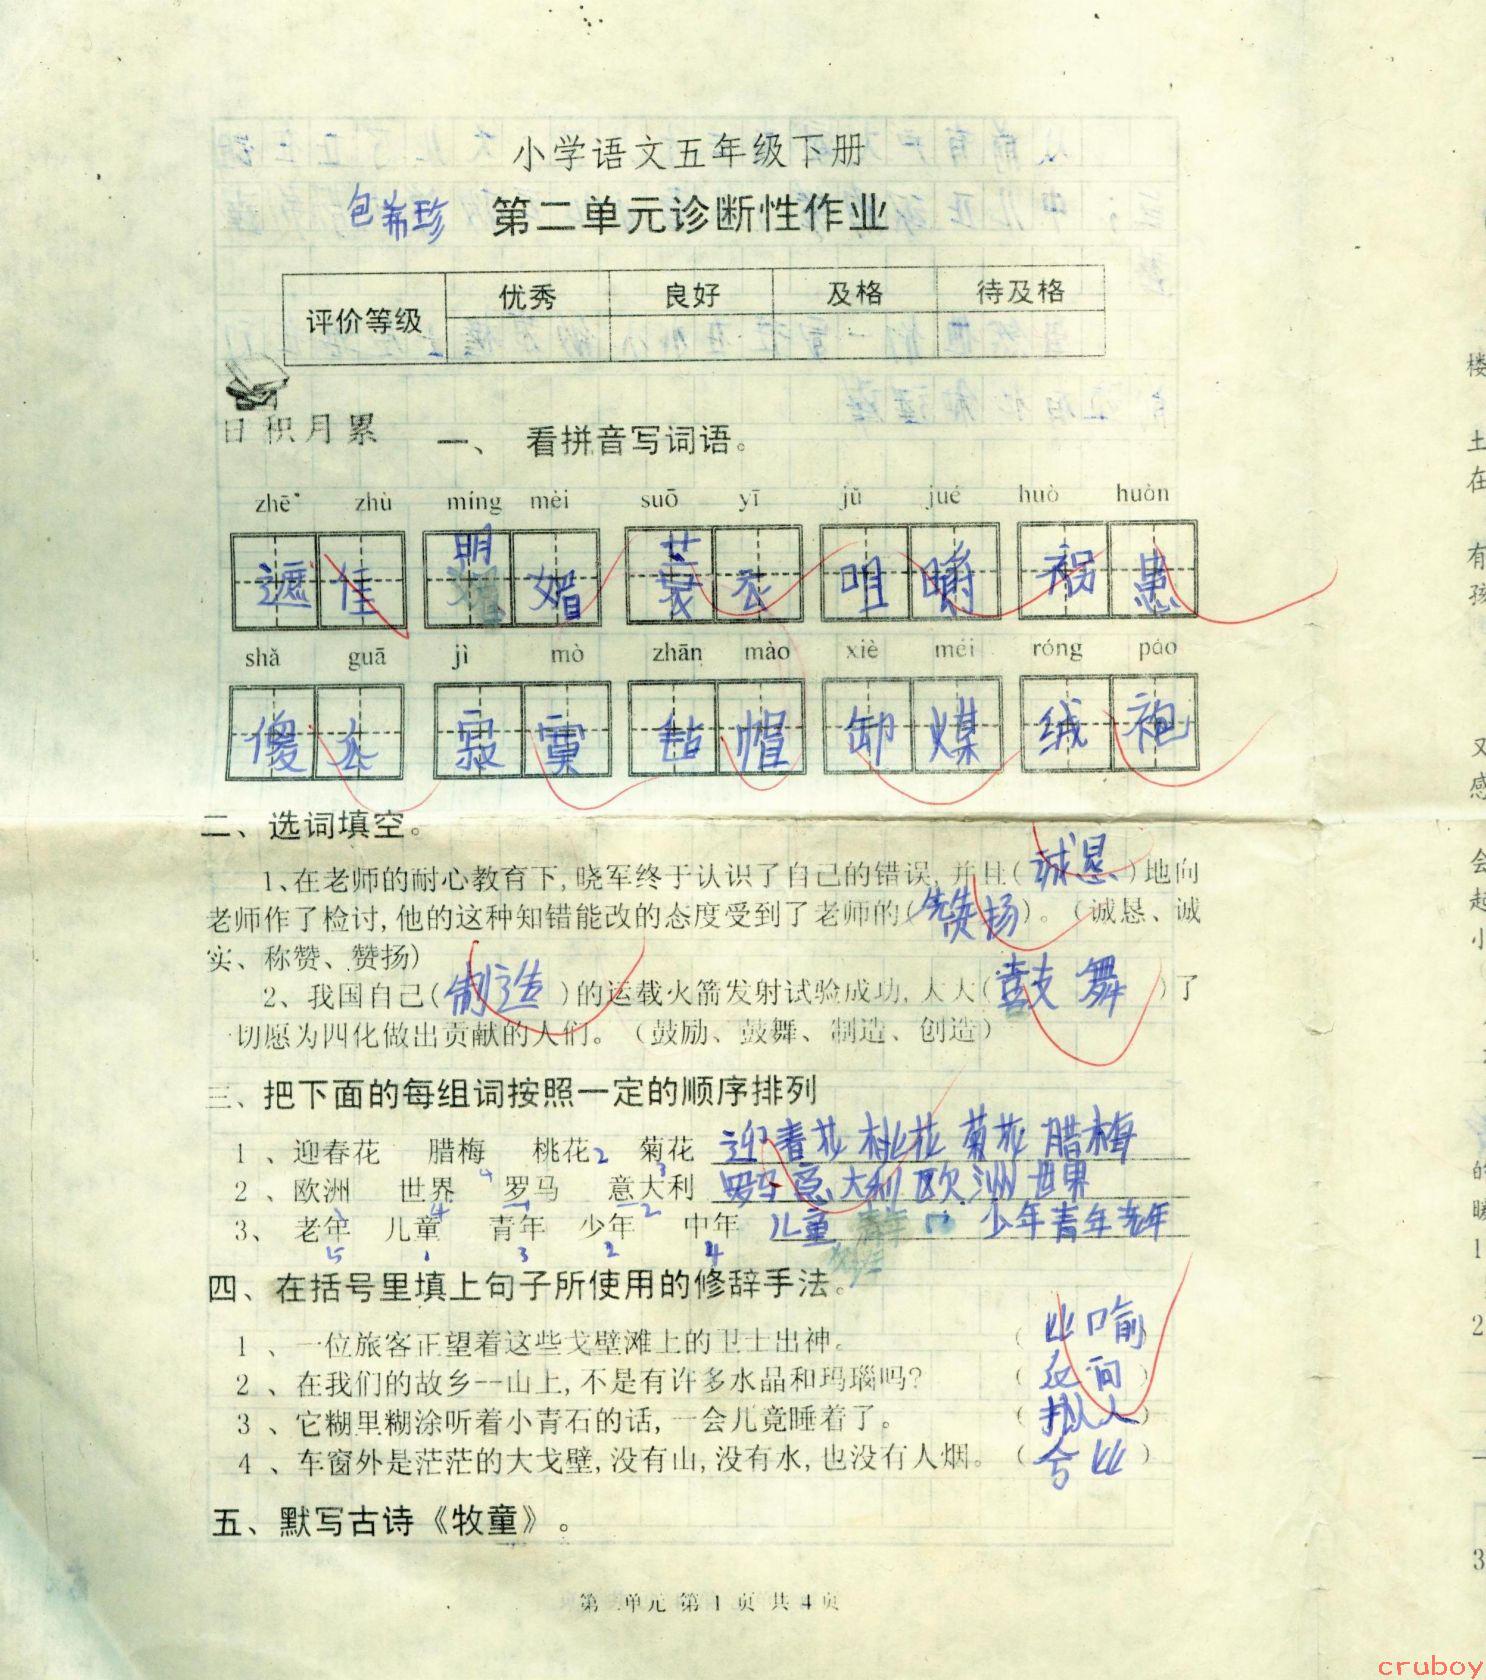 小学语文五年级下册
包希珍 第二单元诊断性作业
评价等级 优秀 良好 及格 待及格
日积月累 一、 看拼音写词语。
zhē zhù míng mèi suō yī jǔ jué huò huàn
遮住 明媚 蓑衣 咀嚼 祸患
shǎ guā jì mò zhān mào xiè méi róng páo
傻瓜 寂寞 毡帽 卸煤 绒袍
二、选词填空。
1、在老师的耐心教育下,晓军终于认识了自己的错误,并且(诚恳)地向
老师作了检讨,他的这种知错能改的态度受到了老师的(赞扬)。(诚恳、诚
实、称赞、赞扬)
2、我国自己(制造)的运载火箭发射试验成功,大大(鼓舞)了
一切愿为四化做出贡献的人们。(鼓励、鼓舞、制造、创造)
三、把下面的每组词按照一定的顺序排列
1、迎春花 腊梅 桃花2 菊花 迎春花 桃花 菊花 腊梅
4 3
2、欧洲 世界 罗马 意大利 罗马 意大利 欧洲 世界
3 4 1 2
3、老年 儿童 青年 少年 中年 儿童 少年 青年 老年
5 1 3 2 4
四、在括号里填上句子所使用的修辞手法。
1、一位旅客正望着这些戈壁滩上的卫士出神。 (比喻)
2、在我们的故乡一山上,不是有许多水晶和玛瑙吗? (反问)
3、它糊里糊涂听着小青石的话,一会儿竟睡着了。 (拟人)
4、车窗外是茫茫的大戈壁,没有山,没有水,也没有人烟。 (夸比)
五、默写古诗《牧童》。
第二单元 第1页 共4页
楼
土
在
有
孩
又
感
会
起
小
的
暖
1
2
3
cruboy